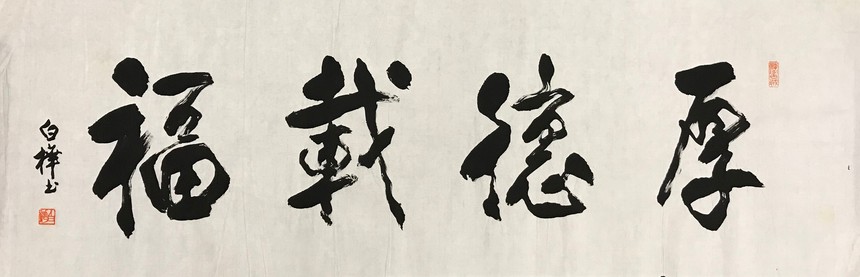 厚德載福
白樺书